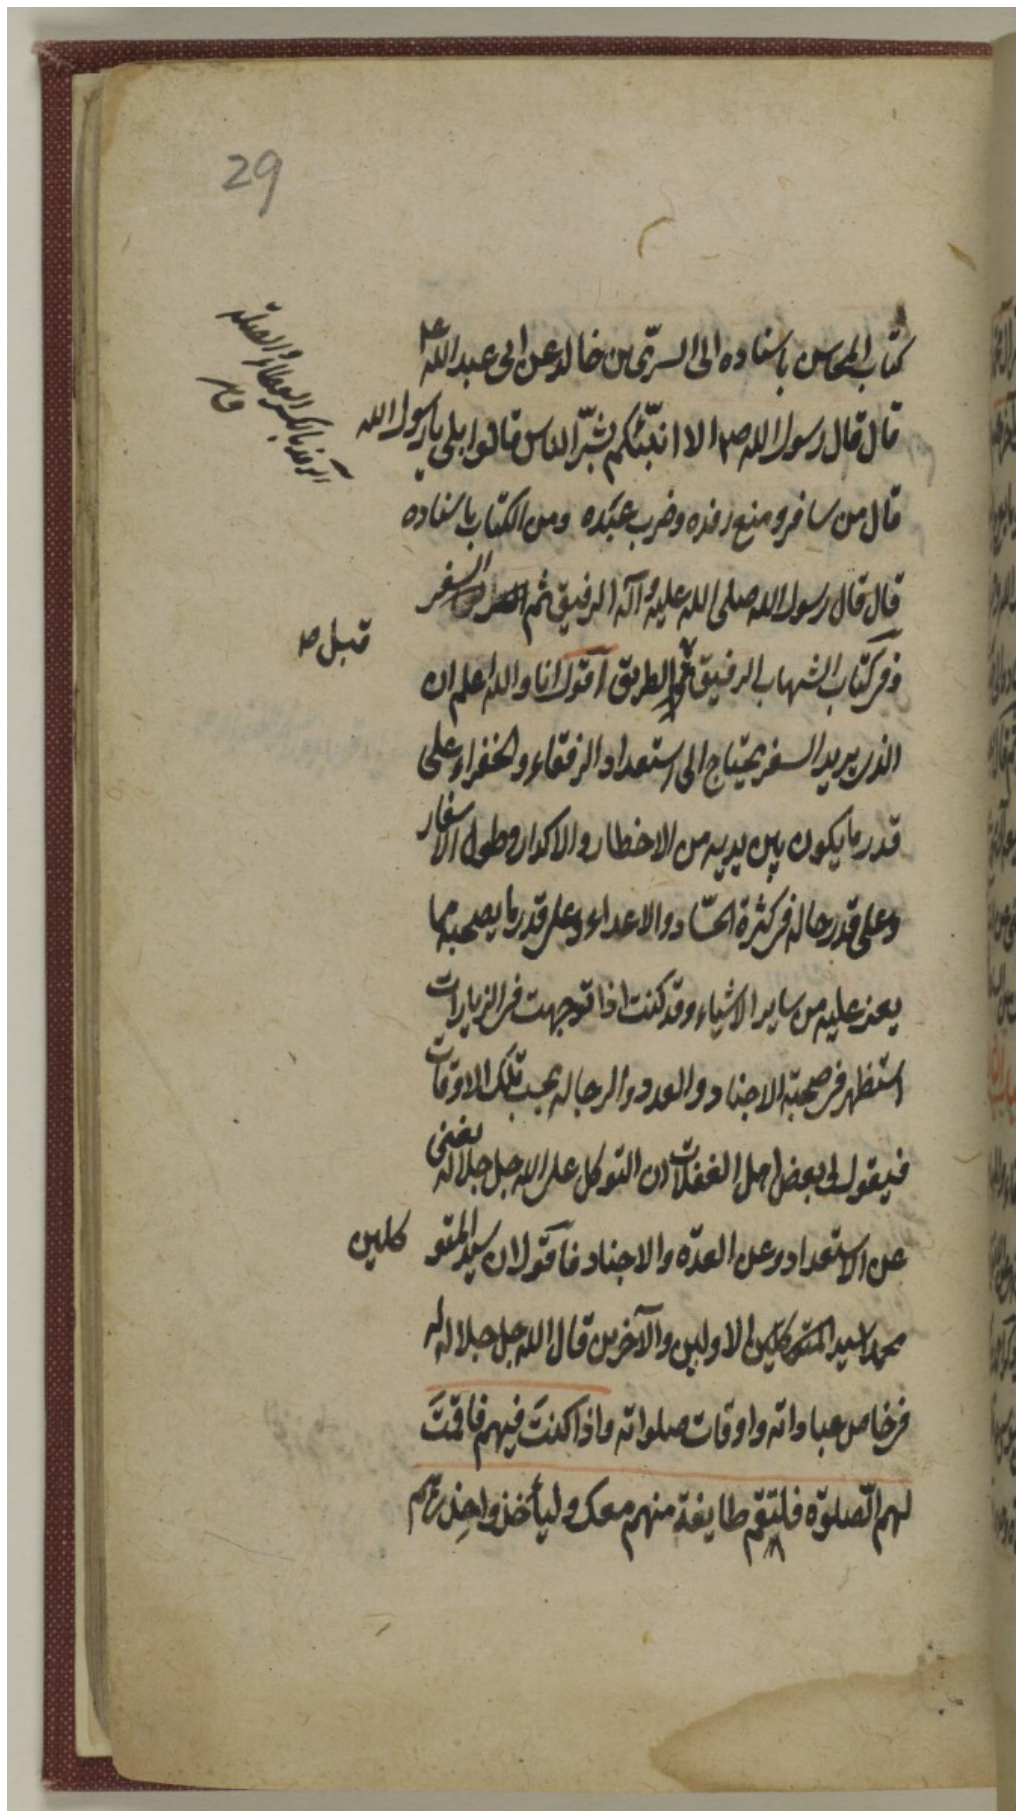 29
كتاب المحاسن باسناده الى السرّى بن خالد عن ابى عبد الله ع
قال قال رسول الله ص الا انبّئكم بشرّ الناس قالوا بلى يا رسول الله
قال من سافر ومنع رفده وضرب عبده ومن الكتاب باسناده
قال قال رسول الله صلى الله عليه وآله الرفيق ثم السفر
وفى كتاب الشهاب الرفيق ثم الطريق اقول انا والله اعلم ان
قبل ص
الذى يريد السفر يحتاج الى استعداد الرفقاء والخفراء على
قدر ما يكون بين يديه من الاخطار والاكدار وطول الاسفار
وعلى قدر حاله فى كثرة الحسّاد والاعداء وعلى قدر ما يصحبه مما
يعز عليه من ساير الاشياء وقد كنت اذا توجهت فى الزيارات
استظهر فى صحبة الاجناد والعدد والرجاله بحسب تلك الاوقات
فيقول لى بعض اهل الغفلات ان التوكل على الله جل جلاله يغنى
عن الاستعداد وعن العدّه والاجناد فاقول ان سيد المتو
كلين
محمد سيد المتوكلين الاولين والآخرين قال الله جل جلاله له
فى خاص عباداته واوقات صلواته واذا كنتَ فيهم فاقمتَ
لهم الصّلوة فلتقم طايفة منهم معك وليأخذوا حذرهم
الرفد بالكسر العطاء والصلة